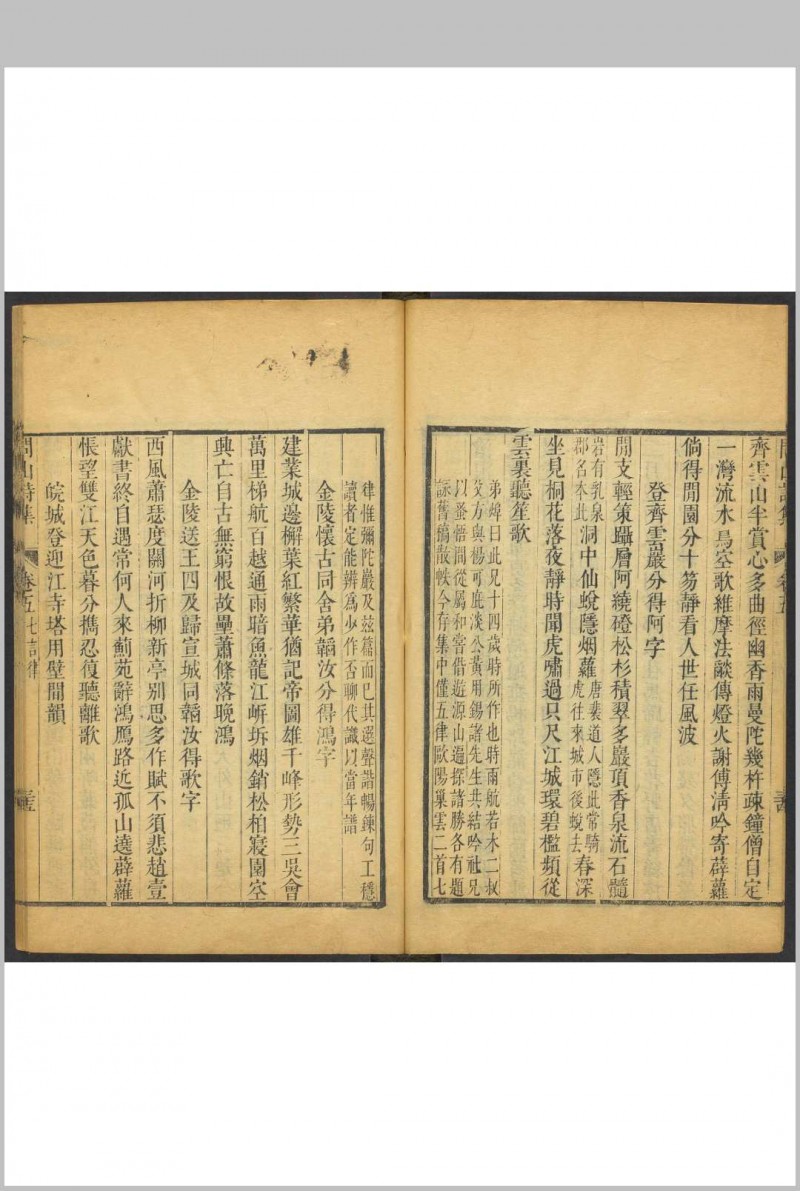 齊雲山半賞心多曲徑幽香雨曼陀幾杵疎鐘僧自定
一灣流水鳥空歌維摩法談傳燈火謝傅清吟寄薜蘿
倘得閒園分十笏靜看人世任風波
登齊雲巖分得阿字
閒支輕策躡層阿繞磴松杉積翠多巖頂香泉流石髓
岩有乳泉
郡名本此
洞中仙蛻隱烟蘿
唐裴道人隱此常騎
虎往來城市後蛻去
春深
坐見桐花落夜靜時聞虎嘯過只尺江城環碧檻頻從
雲裏聽笙歌
弟焯曰此兄十四歲時所作也時雨航若水二叔
父方與楊可庭淡公黃用錫諸先生共結吟社兄
以蚤悟間從屬和嘗偕遊源山遍探諸勝各有題
詠舊稿散帙今存集中僅五律歐陽巢雲二首七
律惟彌陀巖及茲篇而已其選聲諧暢鍊句工穩
讀者定能辨為少作否聊代識以當年譜
金陵懷古同舍弟韜汝分得鴻字
建業城邊槲葉紅繁華猶記帝圖雄千峰形勢三吳會
萬里梯航百越通雨暗魚龍江嶼坼烟銷松柏寢園空
興亡自古無窮恨故壘蕭條落晚鴻
金陵送王四及歸宣城同韜汝得歌字
西風蕭瑟度關河折柳新亭別思多作賦不須悲趙壹
獻書終自遇常何人來薊苑辭鴻鴈路近孤山遶薜蘿
悵望雙江天色暮分攜忍復聽離歌
皖城登迎江寺塔用壁間韻
卷五 七言律